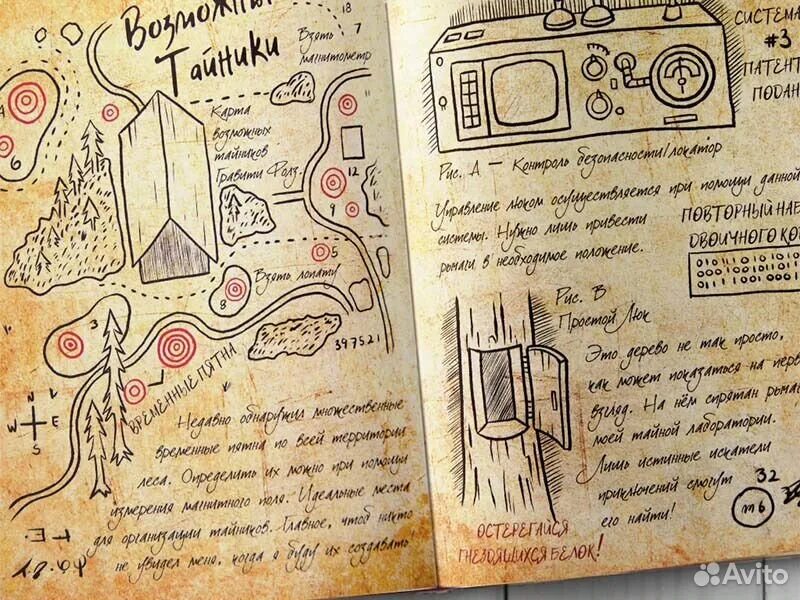 Возможны
Тайники
18
7
Взять
магнитометр
Карта
возможных
тайников
Гравити Фолз.
A
6
12
9
5
Взять лопату
8
3
397521
ВРЕМЕННЫЕ ПЯТНА
N
W E
S
Недавно обнаружил множественные
временные пятна по всей территории
леса. Определить их можно при помощи
измерения магнитного поля. Идеальные места
для организации тайников. Главное, чтоб никто
не увидел меня, когда я буду их создавать
СИСТЕМА
#3
ПАТЕНТ
ПОДАН
Рис. А — Контроль безопасности/локатор
Управление люком осуществляется при помощи данной
системы. Нужно лишь привести
рычаги в необходимое положение.
ПОВТОРНЫЙ НАБ
ДВОИЧНОГО КО
Рис. В
Простой Люк
Это дерево не так просто,
как может показаться на пер
взгляд. На нём спрятан рыча
моей тайной лаборатории.
Лишь истинные искатели
приключений смогут
его найти!
32
m6
ОСТЕРЕГАЙСЯ
ГНЕЗДЯЩИХСЯ БЕЛОК!
Avito